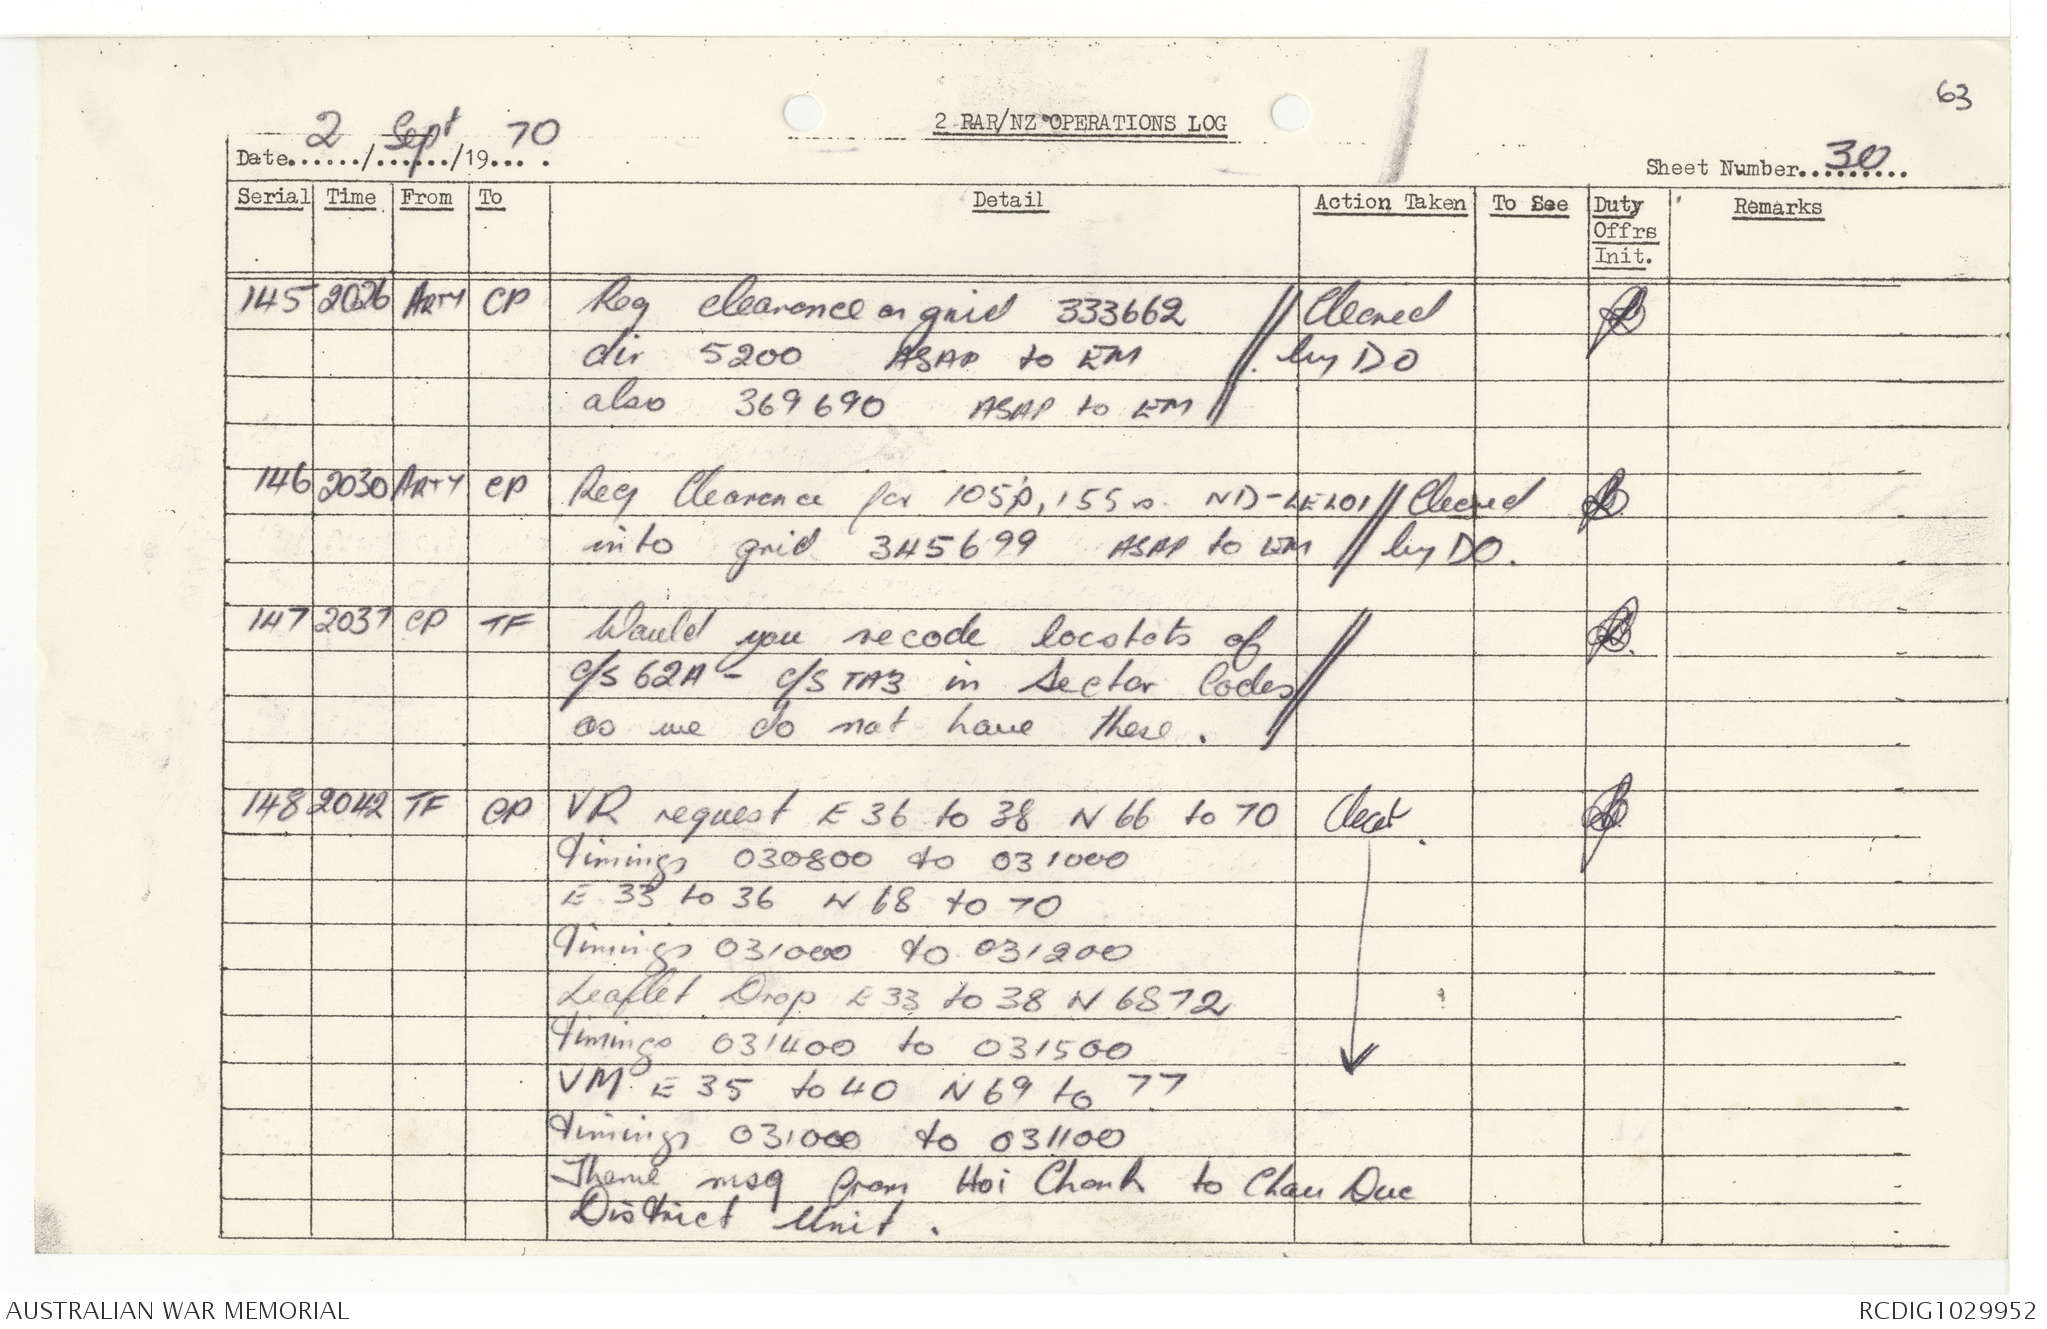 63
2 RAR/NZ OPERATIONS LOG
Date 2/Sept/1970
Sheet Number 30
Serial Time From To Detail Action Taken To See Duty Offrs Init. Remarks
145 2026 ARTY CP Req clearance on grid 333662 // Cleared
dir 5200 ASAP to EM // by DO
also 369690 ASAP to EM //
146 2030 ARTY CP Req Clearance for 105, 155 ND- // Cleared
into grid 345699 ASAP to EM // by DO.
147 2037 CP TF Would you recode locstats of
c/s 62A - c/s TA3 in Sector Codes //
as we do not have these.
148 2042 TF CP VR request E 36 to 38 N 66 to 70 Clear.
timings 030800 to 031000
E 33 to 36 N 68 to 70
timings 031000 to 031200
Leaflet Drop E 33 to 38 N 6872
timings 031400 to 031500
VM E 35 to 40 N 69 to 77
timings 031000 to 031100
Theme msg from Hoi Chanh to Chau Duc
District Unit.
AUSTRALIAN WAR MEMORIAL
RCDIG1029952